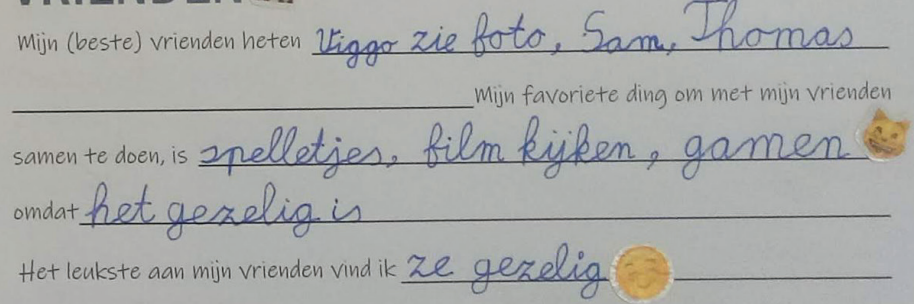 VRIENDEN
Mijn (beste) vrienden heten Viggo zie foto, Sam, Thomas
Mijn favoriete ding om met mijn vrienden
samen te doen, is spelletjes, film kijken, gamen
omdat het gezelig is
Het leukste aan mijn vrienden vind ik ze gezelig